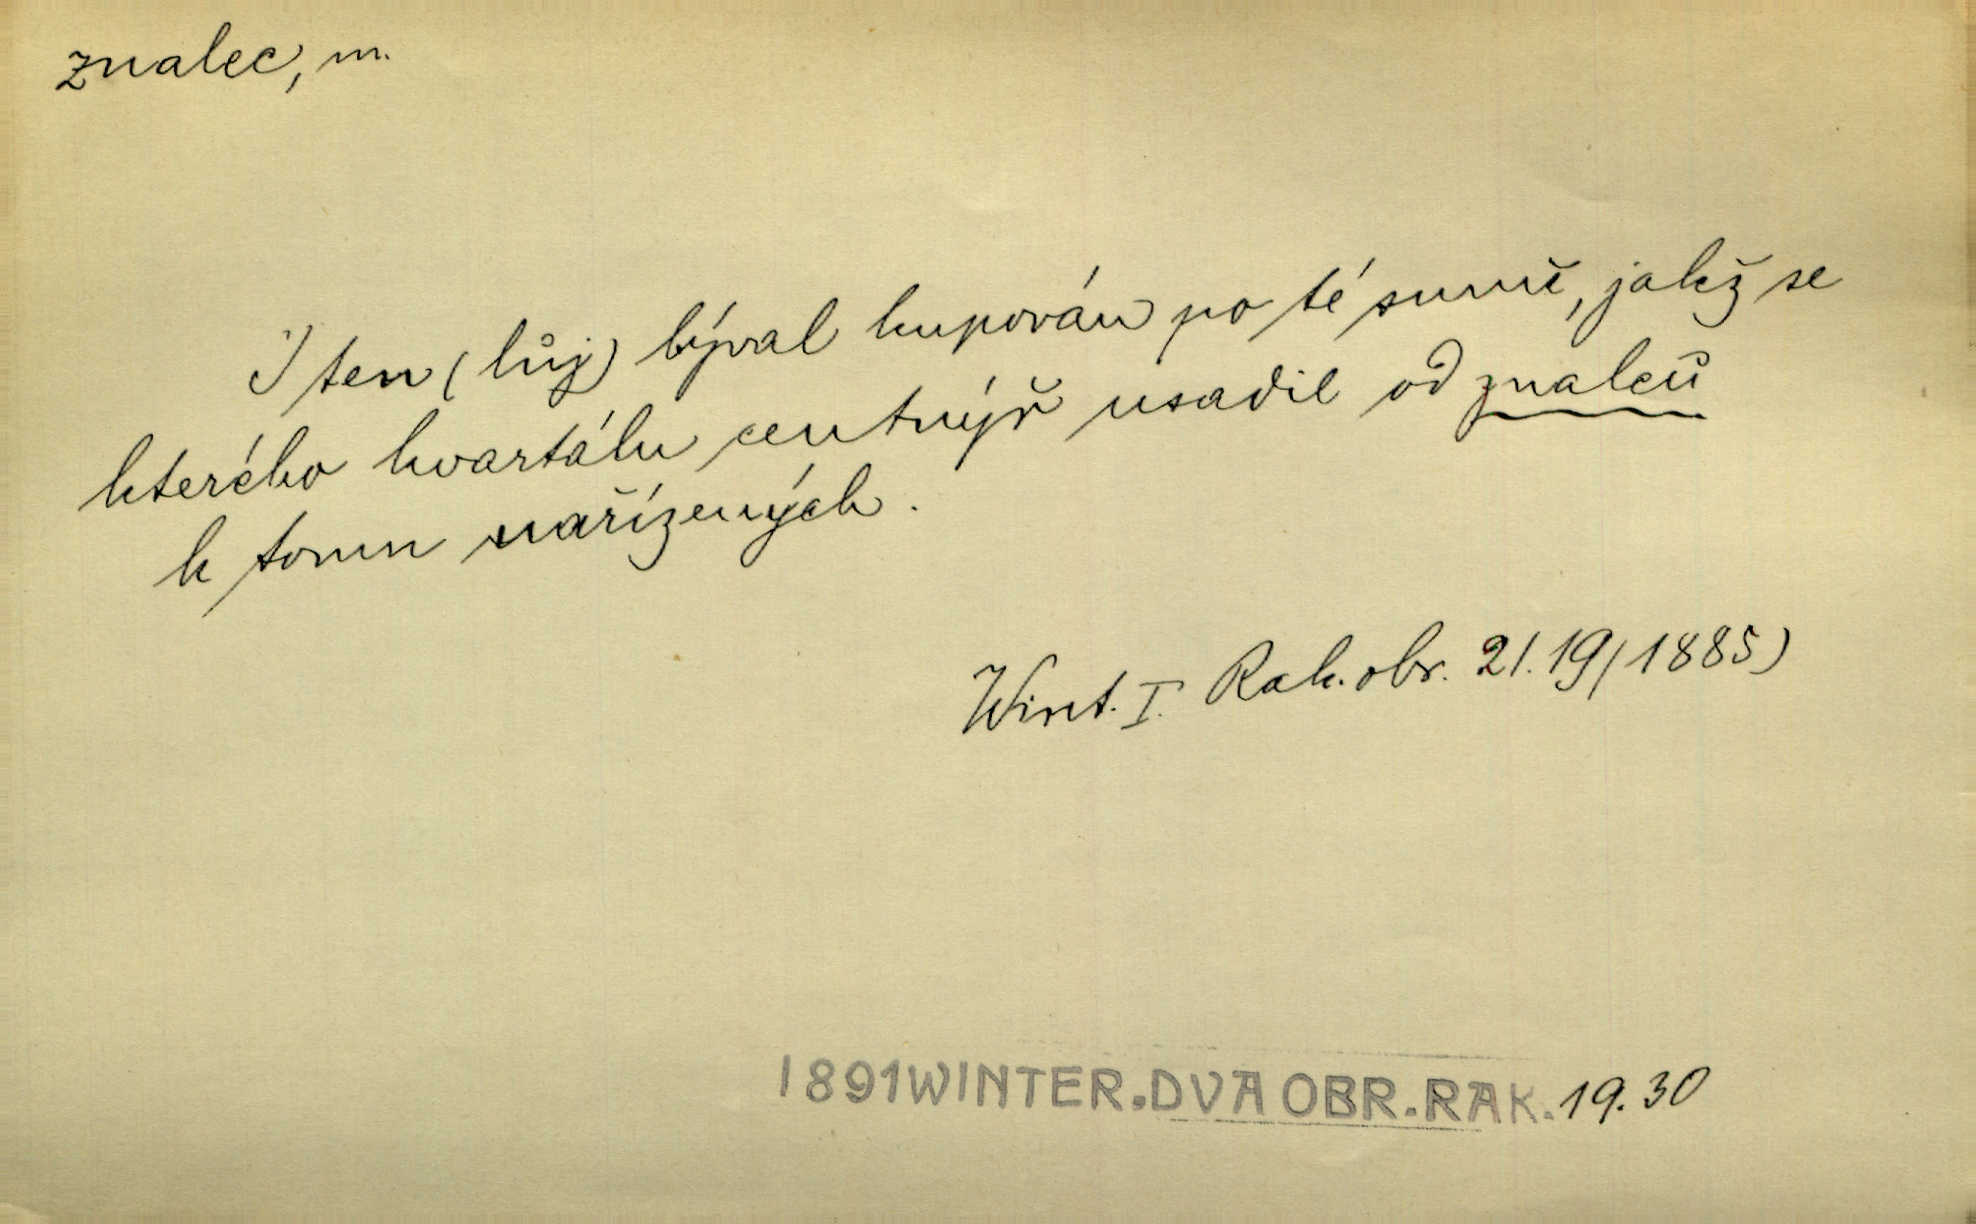 znalec, m.
I ten (lůj) býval kupován po té sumě, jakž se
kterého kvartálu centnýř usadil od znalců
k tomu nařízených.
Wint. I. Rak. obr. 21. 19 (1885)
1891 WINTER. DVA OBR. RAK. 19. 30